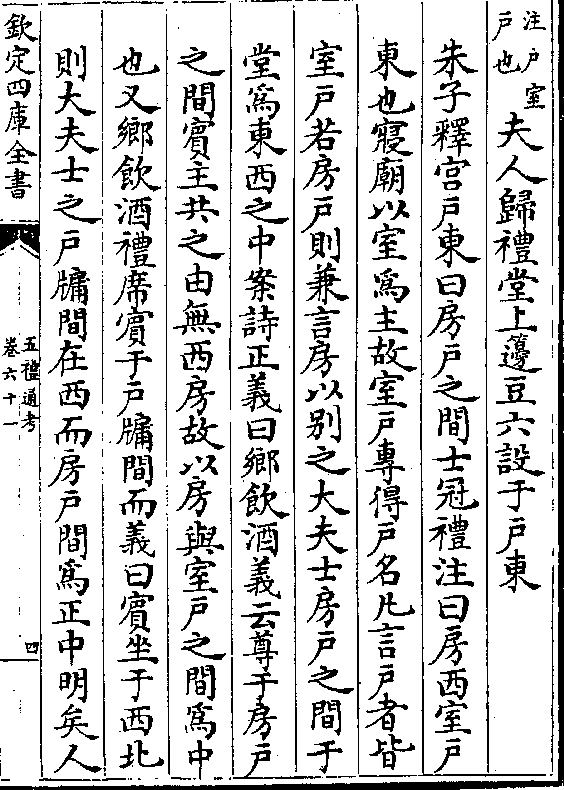 注户室
户也
夫人歸禮堂上籩豆六設于户東
朱子釋宫户東曰房户之間士冠禮注曰房西室户
東也寢廟以室為主故室户專得户名凡言户者皆
室户若房户則兼言房以别之大夫士房户之間于
堂為東西之中案詩正義曰鄉飲酒義云尊于房户
之間賓主共之由無西房故以房與室户之間為中
也又鄉飲酒禮席賓于户牖間而義曰賓坐于西北
則大夫士之户牖間在西而房户間為正中明矣人
欽定四庫全書
五禮通考
卷六十一
四